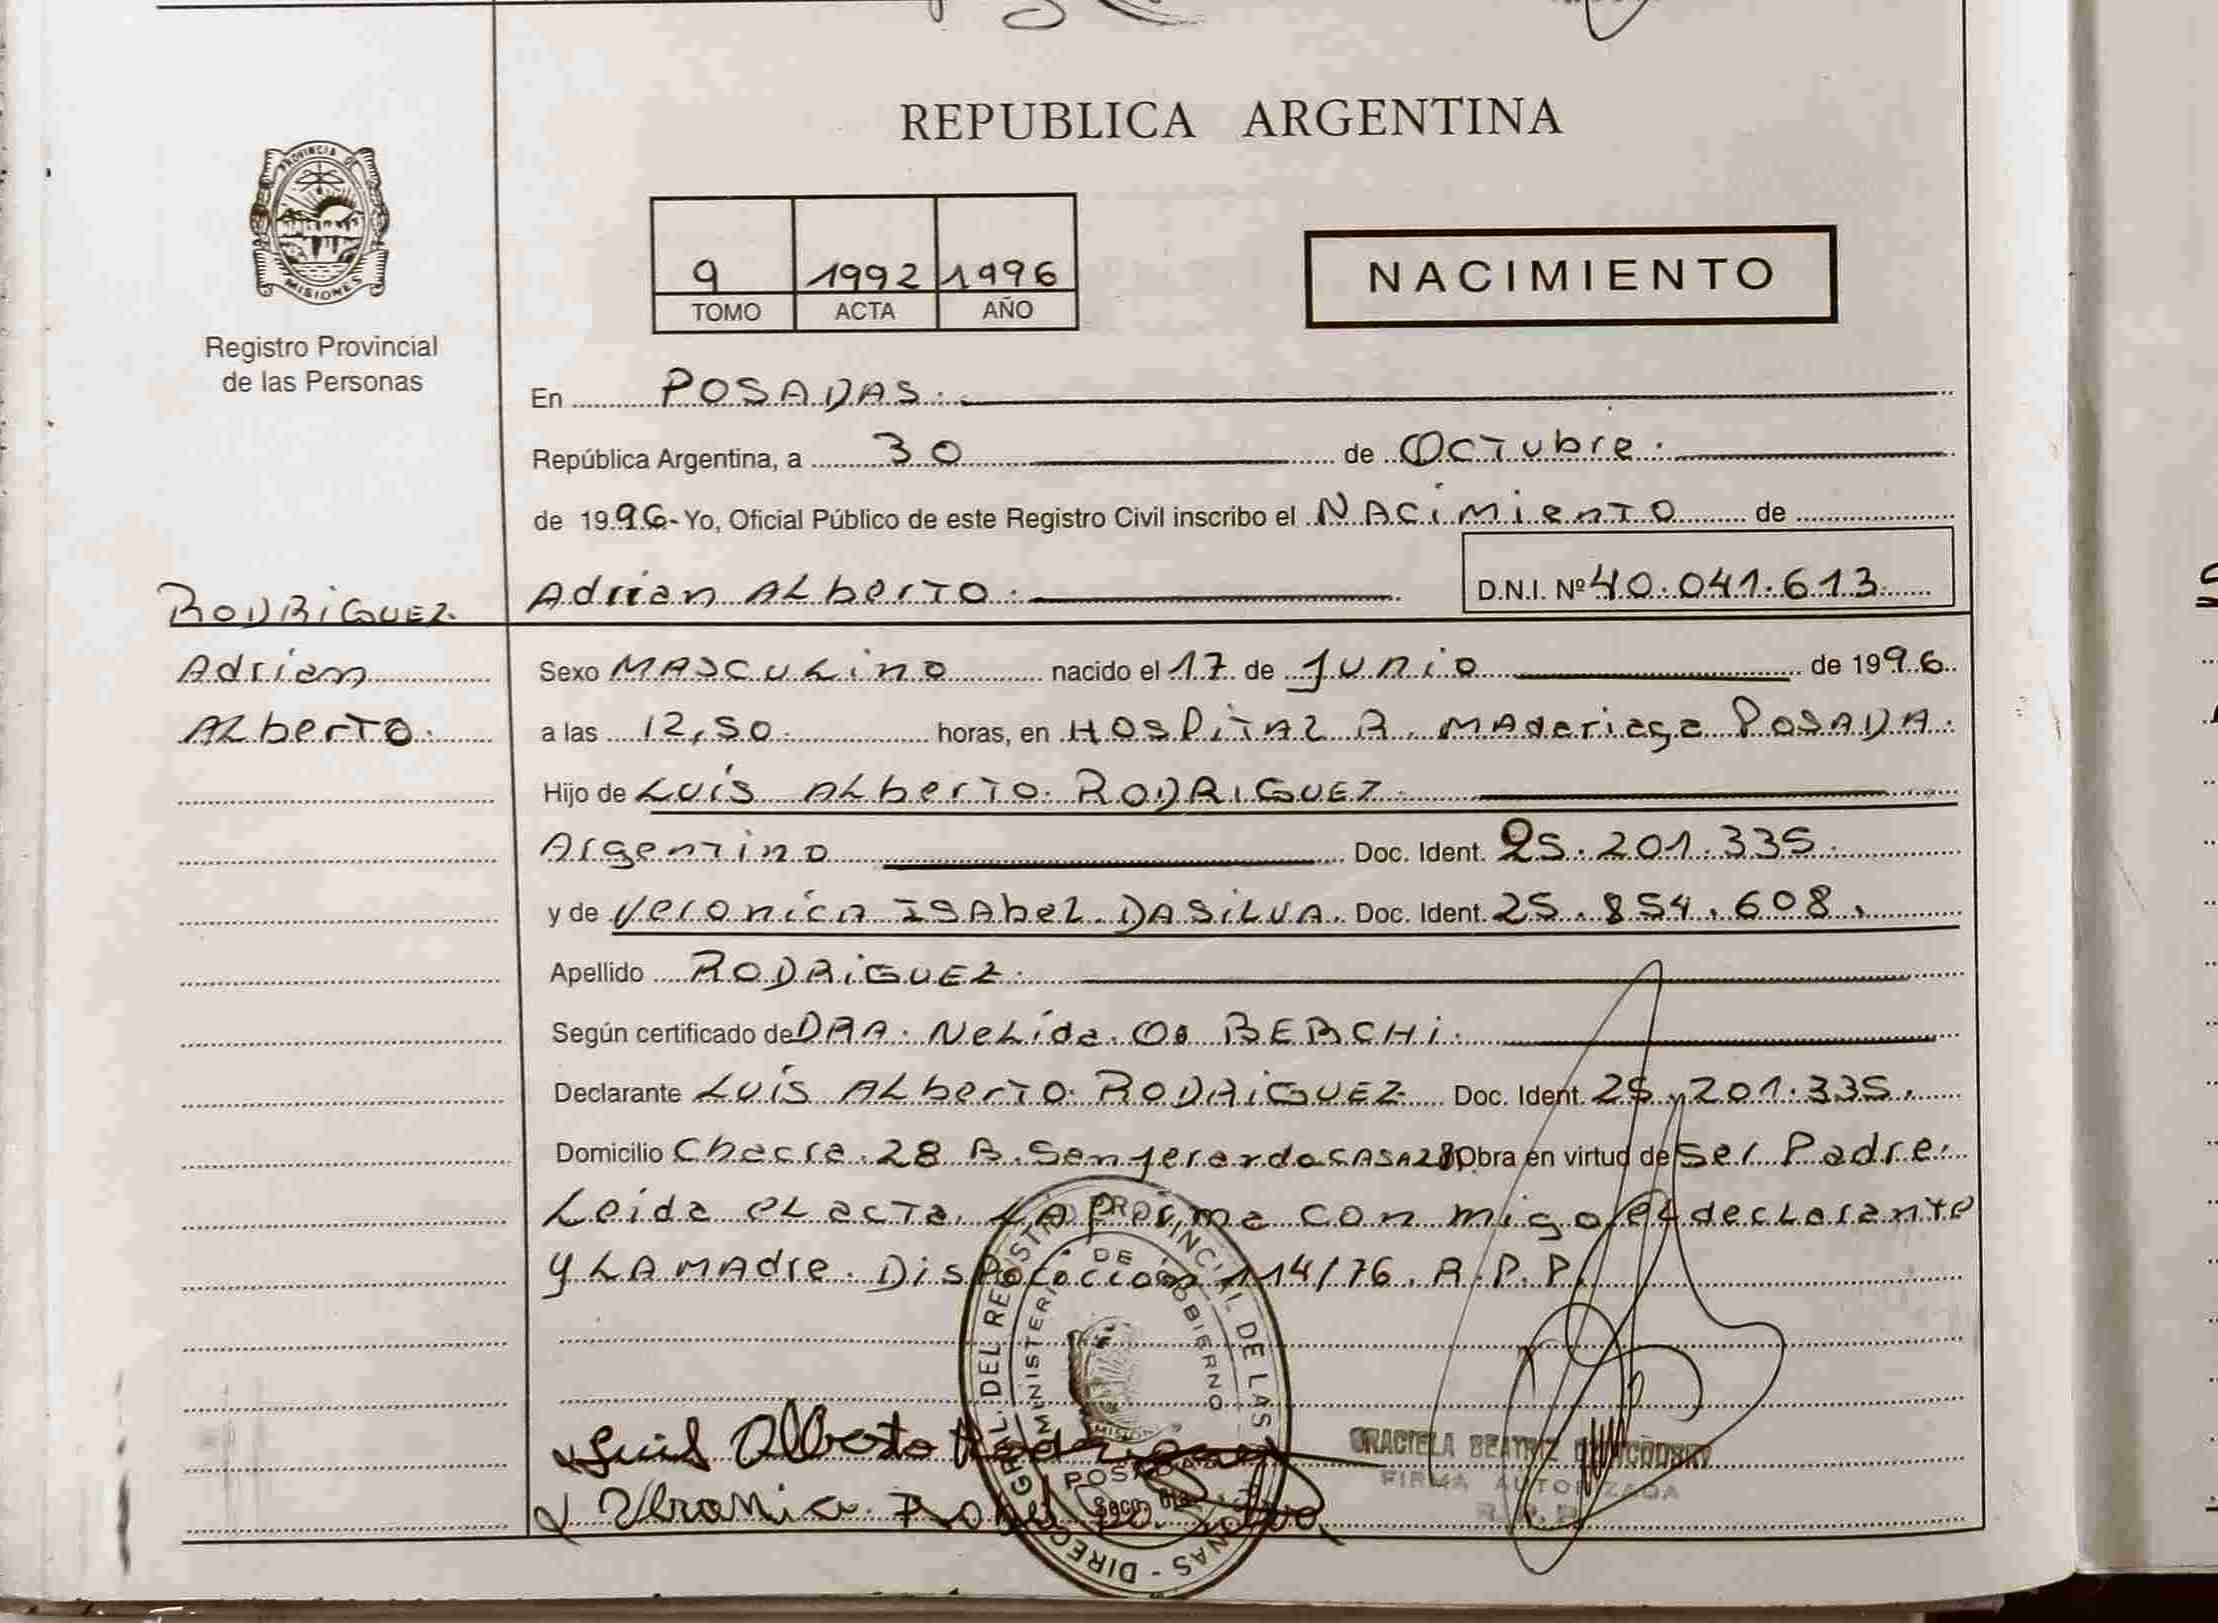 REPUBLICA ARGENTINA
PROVINCIA DE
MISIONES
Registro Provincial
de las Personas
9 1992 1996
TOMO ACTA AÑO
NACIMIENTO
En POSADAS.
República Argentina, a 30 de Octubre.
de 1996- Yo, Oficial Público de este Registro Civil inscribo el NACimienTO de
Adrian ALberTO. D.N.I. Nº 40.041.613
RODRiGUEZ
Adrian
ALberTO.
Sexo MASCULino nacido el 17 de Junio de 1996
a las 12,50. horas, en HOSPiTAL R. MAderiaga POSADA.
Hijo de Luis ALberTO RODRIGUEZ.
Argentino Doc. Ident. 25.201.335.
y de Veronica ISAbeL DASiLVA. Doc. Ident. 25.854.608.
Apellido RODRiGUEZ.
Según certificado de DRA. NeLida O. BERCHi.
Declarante Luis ALberTO RODRiGUEZ Doc. Ident. 25.201.335.
Domicilio Chacra 28 B. San gerardo CASA 28 Obra en virtud de ser Padre.
Leida eL acta, LA Firma con migo eL decLarante
y LA MAdre. Disposicion 114/76. R.P.P.
DIREC. GRAL. DEL REGISTRO PROVINCIAL DE LAS
MINISTERIO DE GOBIERNO
MISIONES
POSADAS
Luis Alberto Rodriguez
Veronica Isabel Da Silva
GRACIELA BEATRIZ
FIRMA AUTORIZADA